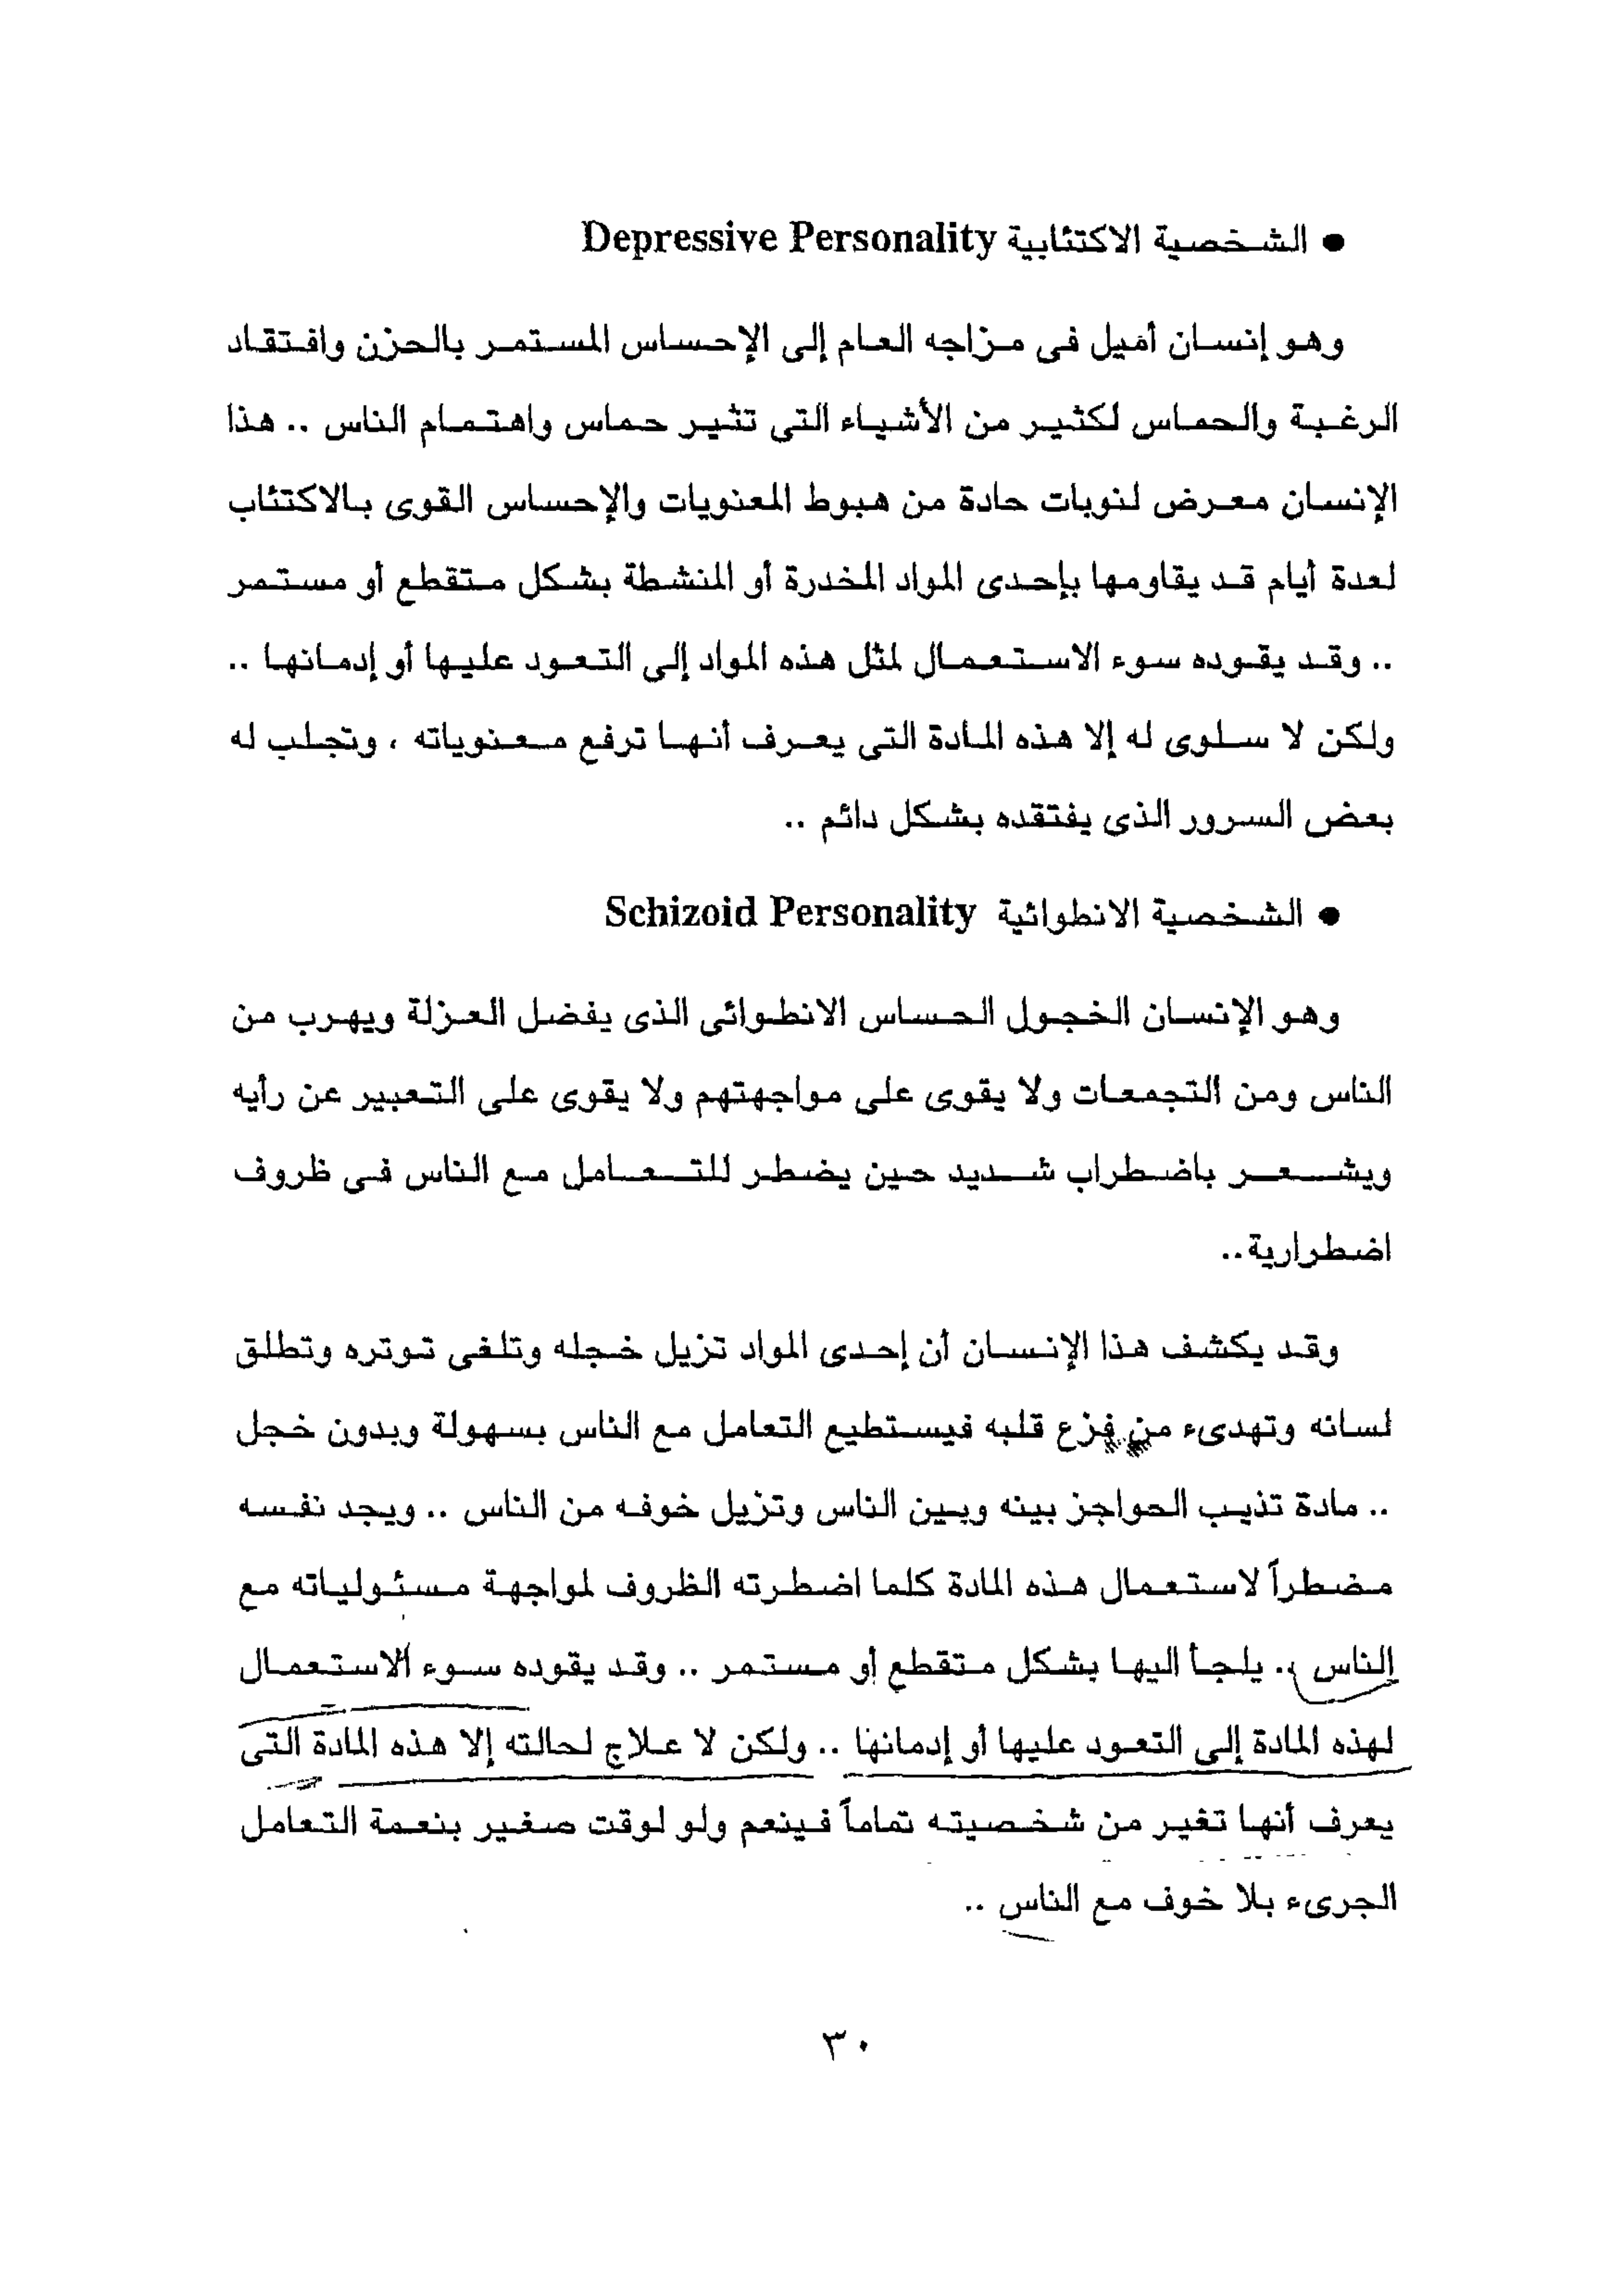 ● الشخصية الاكتئابية Depressive Personality
وهو إنسان أميل فى مزاجه العام إلى الإحساس المستمر بالحزن وافتقاد
الرغبة والحماس لكثير من الأشياء التى تثير حماس واهتمام الناس .. هذا
الإنسان معرض لنوبات حادة من هبوط المعنويات والإحساس القوى بالاكتئاب
لعدة أيام قد يقاومها بإحدى المواد المخدرة أو المنشطة بشكل متقطع أو مستمر
.. وقد يقوده سوء الاستعمال لمثل هذه المواد إلى التعود عليها أو إدمانها ..
ولكن لا سلوى له إلا هذه المادة التى يعرف أنها ترفع معنوياته ، وتجلب له
بعض السرور الذى يفتقده بشكل دائم ..
● الشخصية الانطوائية Schizoid Personality
وهو الإنسان الخجول الحساس الانطوائى الذى يفضل العزلة ويهرب من
الناس ومن التجمعات ولا يقوى على مواجهتهم ولا يقوى على التعبير عن رأيه
ويشعر باضطراب شديد حين يضطر للتعامل مع الناس فى ظروف
اضطرارية..
وقد يكشف هذا الإنسان أن إحدى المواد تزيل خجله وتلغى توتره وتطلق
لسانه وتهدىء من فزع قلبه فيستطيع التعامل مع الناس بسهولة وبدون خجل
.. مادة تذيب الحواجز بينه وبين الناس وتزيل خوفه من الناس .. ويجد نفسه
مضطراً لاستعمال هذه المادة كلما اضطرته الظروف لمواجهة مسئولياته مع
الناس .. يلجأ اليها بشكل متقطع أو مستمر .. وقد يقوده سوء الاستعمال
لهذه المادة إلى التعود عليها أو إدمانها .. ولكن لا علاج لحالته إلا هذه المادة التى
يعرف أنها تغير من شخصيته تماماً فينعم ولو لوقت صغير بنعمة التعامل
الجرىء بلا خوف مع الناس ..
٣٠